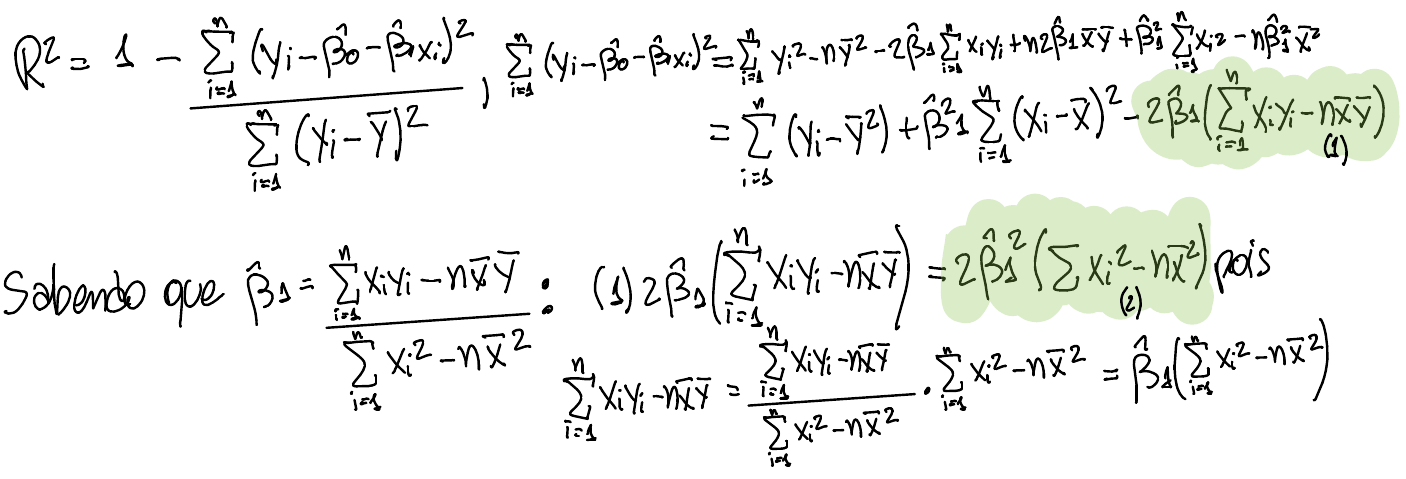 R² = 1 − \frac{\sum_{i=1}^{n} (yᵢ − β̂₀ − β̂₁xᵢ)²}{\sum_{i=1}^{n} (yᵢ − ȳ)²} , \sum_{i=1}^{n} (yᵢ − β̂₀ − β̂₁xᵢ)² = \sum_{i=1}^{n} yᵢ² − nȳ² − 2β̂₁ \sum_{i=1}^{n} xᵢyᵢ + n2β̂₁x̄ȳ + β̂₁² \sum_{i=1}^{n} xᵢ² − nβ̂₁²x̄²
= \sum_{i=1}^{n} (yᵢ − ȳ²) + β̂²₁ \sum_{i=1}^{n} (xᵢ − x̄)² − 2β̂₁ (\sum_{i=1}^{n} xᵢyᵢ − nx̄ȳ) (1)
Sabendo que β̂₁ = \frac{\sum_{i=1}^{n} xᵢyᵢ − nx̄ȳ}{\sum_{i=1}^{n} xᵢ² − nx̄²} : (1) 2β̂₁ (\sum_{i=1}^{n} xᵢyᵢ − nx̄ȳ) = 2β̂₁² (\sum xᵢ² − nx̄²) (2) pois
\sum_{i=1}^{n} xᵢyᵢ − nx̄ȳ = \frac{\sum_{i=1}^{n} xᵢyᵢ − nx̄ȳ}{\sum_{i=1}^{n} xᵢ² − nx̄²} · \sum_{i=1}^{n} xᵢ² − nx̄² = β̂₁ (\sum_{i=1}^{n} xᵢ² − nx̄²)